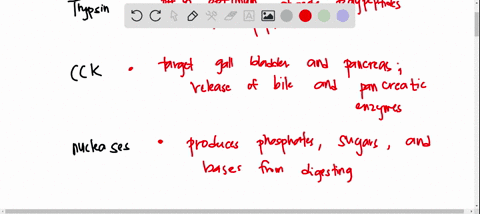 Trypsin
CCK • target gall bladder and pancreas;
release of bile and pancreatic
enzymes
nucleases • produces phosphates, sugars, and
bases from digesting